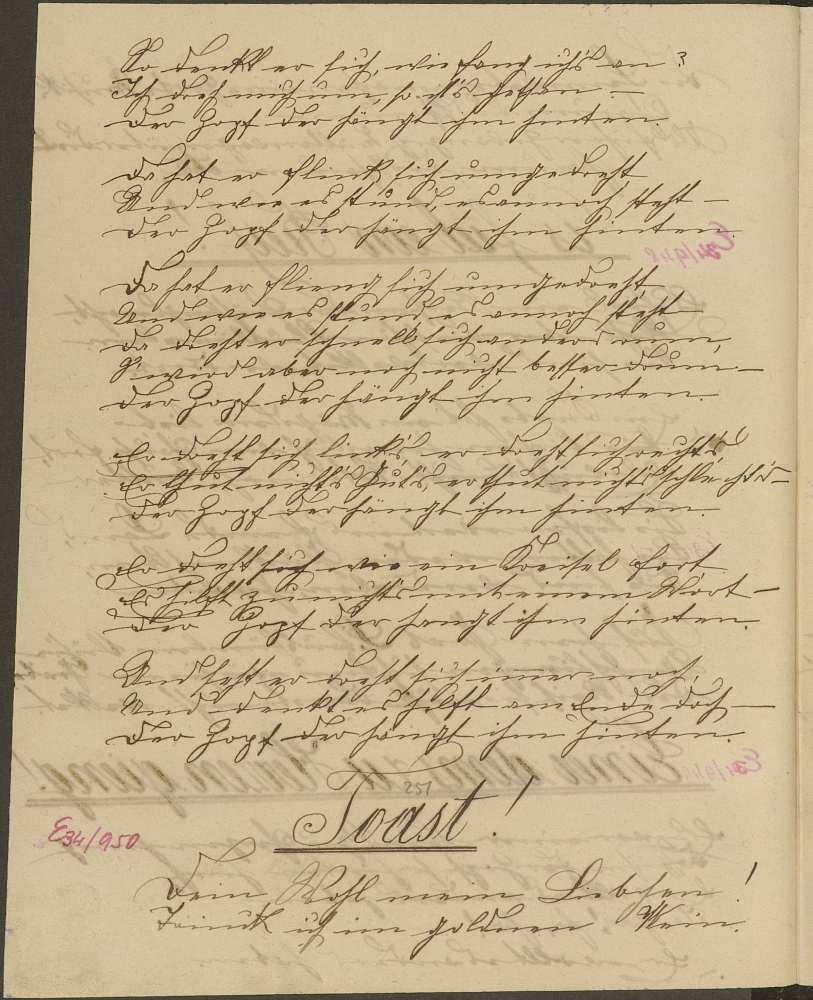 So denkt er sich, wie fang ich's an?
Ich dreh mich um, so ist's gethan —
Der Zopf der hängt ihm hinten.
Da hat er flink sich umgedreht
Und wie es stund, es annoch steht —
Der Zopf der hängt ihm hinten.
Da hat er flieng sich umgedreht
Und wie es stund es annoch steht
Da dreht er schnell sich anders rum,
S' wird aber noch nicht besser drum —
Der Zopf der hängt ihm hinten.
Er dreht sich link's, er dreht sich recht's,
Er thut nicht's Gut's, er thut nicht's schlecht's —
Der Zopf der hängt ihm hinten.
Er dreht sich wie ein Kreisel fort
Es hilft zu nichts mit einem Wort —
Der Zopf der hängt ihm hinten.
Und seht er dreht sich immer noch,
Und denkt es hilft am Ende doch —
Der Zopf der hängt ihm hinten.
251
Toast!
E34/950
Dein Wohl mein Liebchen!
Trinck ich im goldnen Wein.